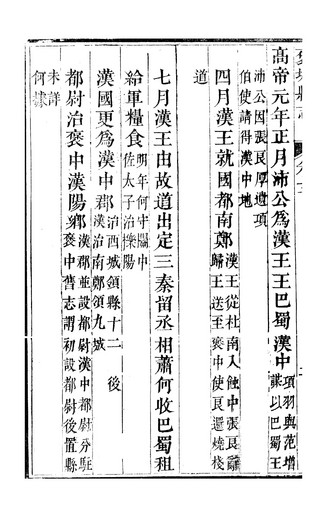 高帝元年正月沛公爲漢王王巴蜀漢中項羽與范增謀以巴蜀王
沛公因張良厚遺項伯使請得漢中地
四月漢王就國都南鄭漢王從杜南入蝕中張良辭歸王送至褒中使良還燒棧
道
七月漢王由故道出定三秦留丞相蕭何收巴蜀租
給軍糧食明年何守關中佐太子治櫟陽
漢國更爲漢中郡治西城領縣十二後漢治南鄭領九城
都尉治褒中漢陽鄉漢郡並設都尉漢中都尉分駐褒中舊志謂初設都尉後置縣
未詳何據